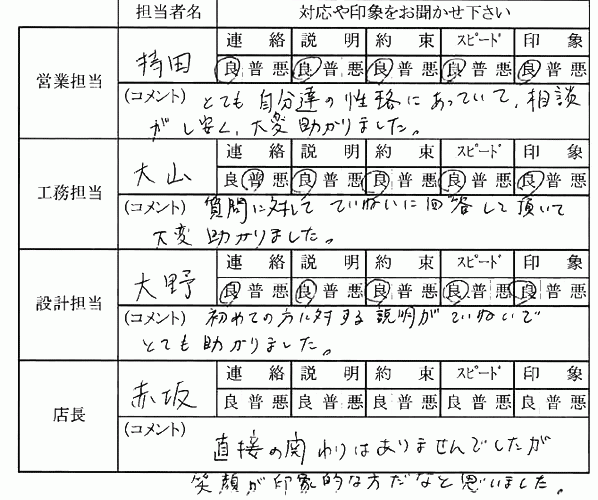 担当者名 対応や印象をお聞かせ下さい
営業担当 持田 連絡 説明 約束 スピード 印象
良 普 悪 良 普 悪 良 普 悪 良 普 悪 良 普 悪
(コメント) とても自分達の性格にあっていて、相談
がし安く、大変助かりました。
工務担当 大山 連絡 説明 約束 スピード 印象
良 普 悪 良 普 悪 良 普 悪 良 普 悪 良 普 悪
(コメント) 質問に対して ていねいに回答して頂いて
大変助かりました。
設計担当 大野 連絡 説明 約束 スピード 印象
良 普 悪 良 普 悪 良 普 悪 良 普 悪 良 普 悪
(コメント) 初めての方に対する説明がていねいで
とても助かりました。
店長 赤坂 連絡 説明 約束 スピード 印象
良 普 悪 良 普 悪 良 普 悪 良 普 悪 良 普 悪
(コメント)
直接の関わりはありませんでしたが
笑顔が印象的な方だなと思いました。